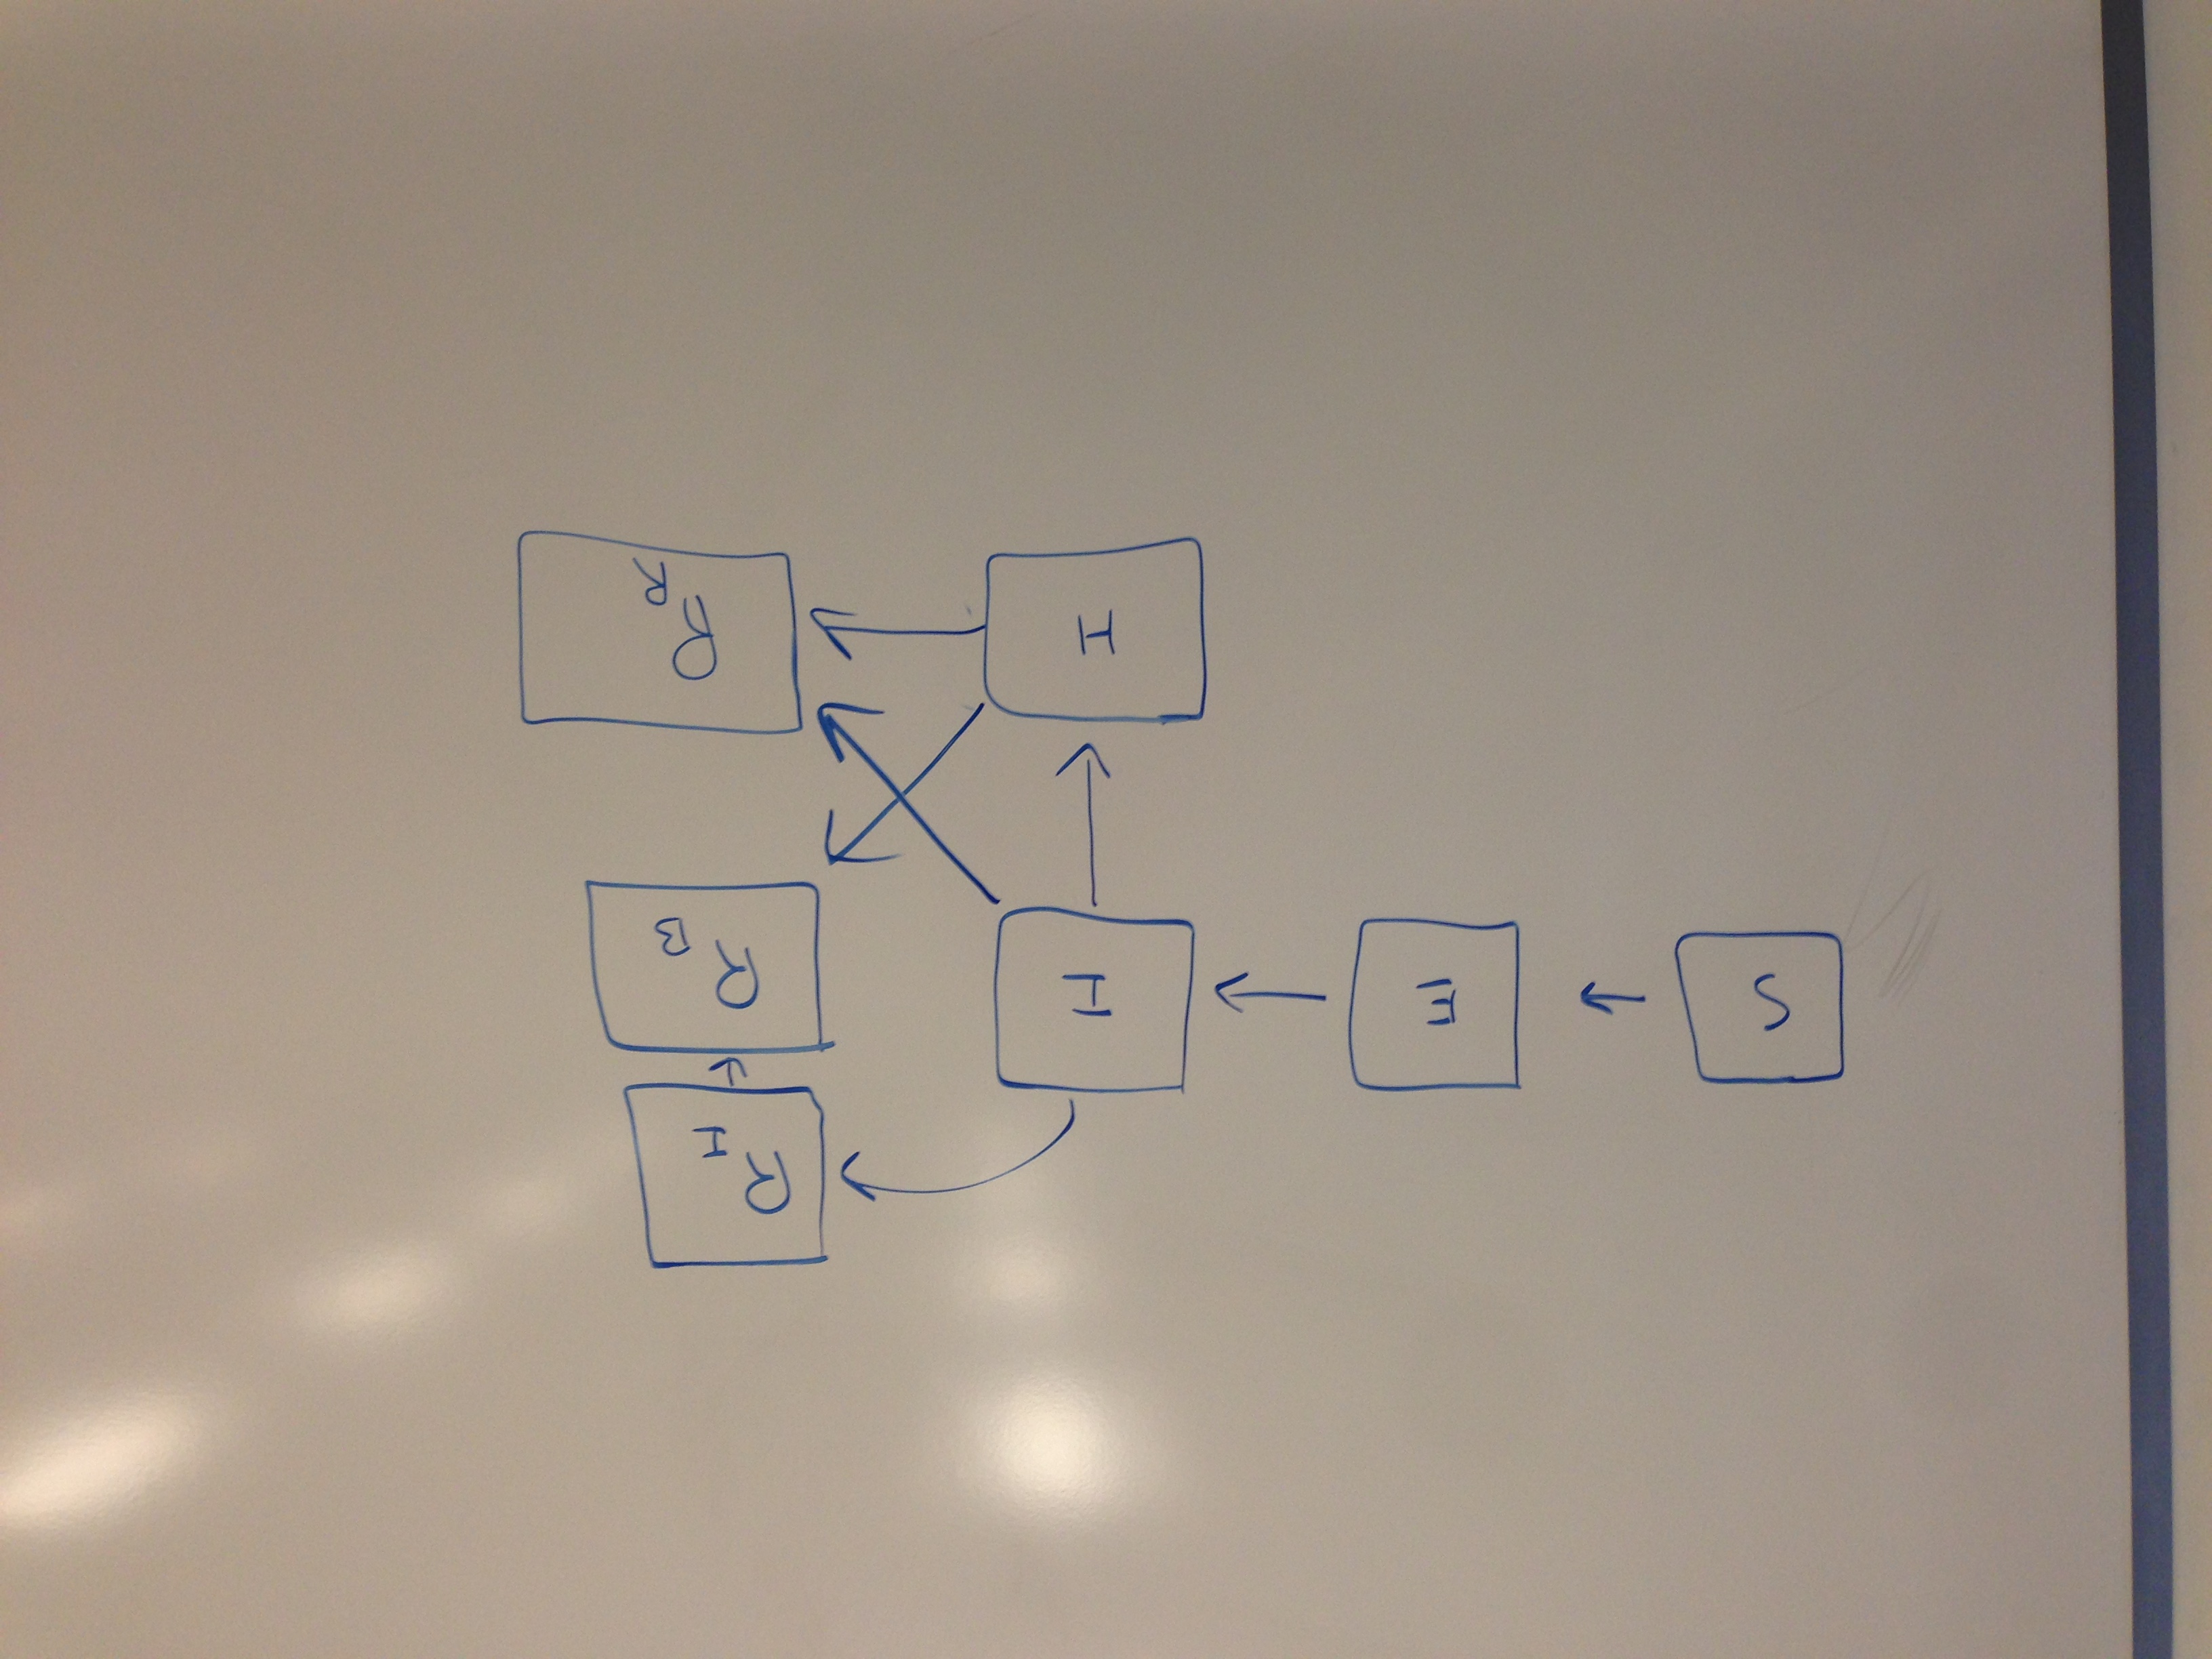 S
E
I
R I
R B
H
R R